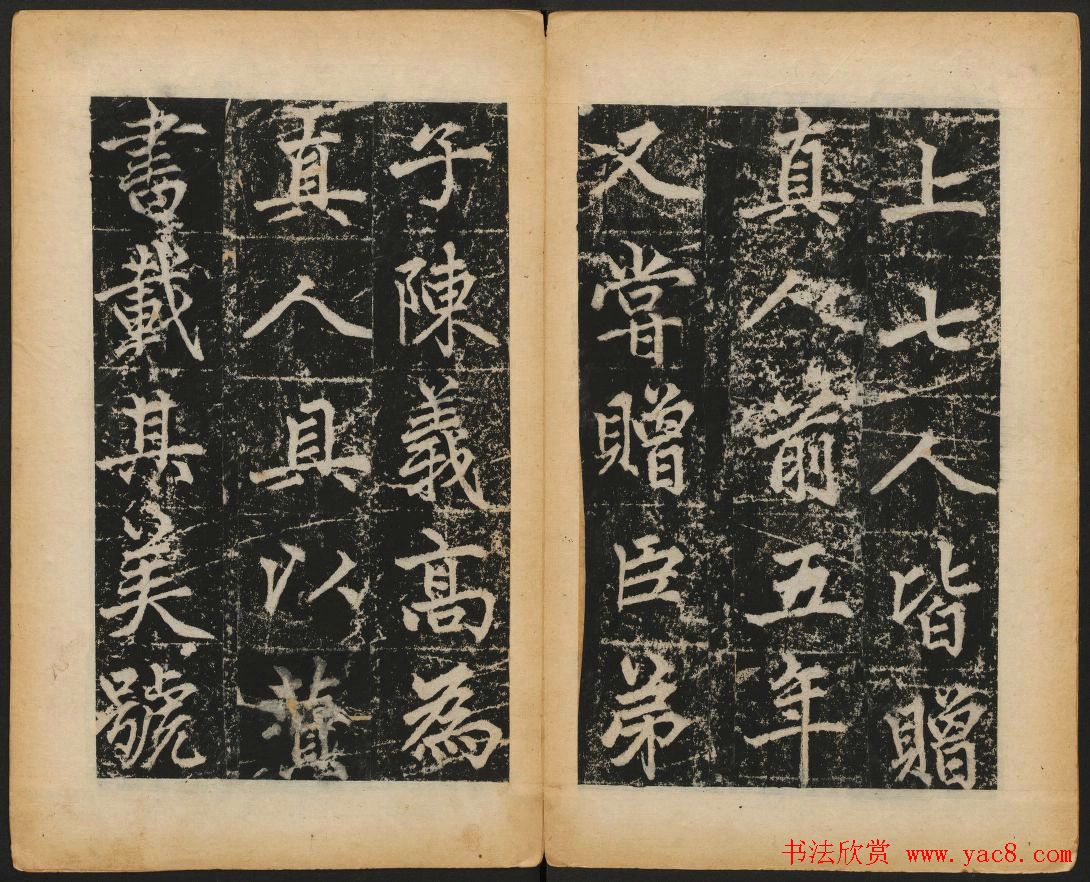 上七人皆贈
真人前五年
又甞贈臣弟
子陳義高為
真人具以
書載其美號
书法欣赏 www.yac8.com